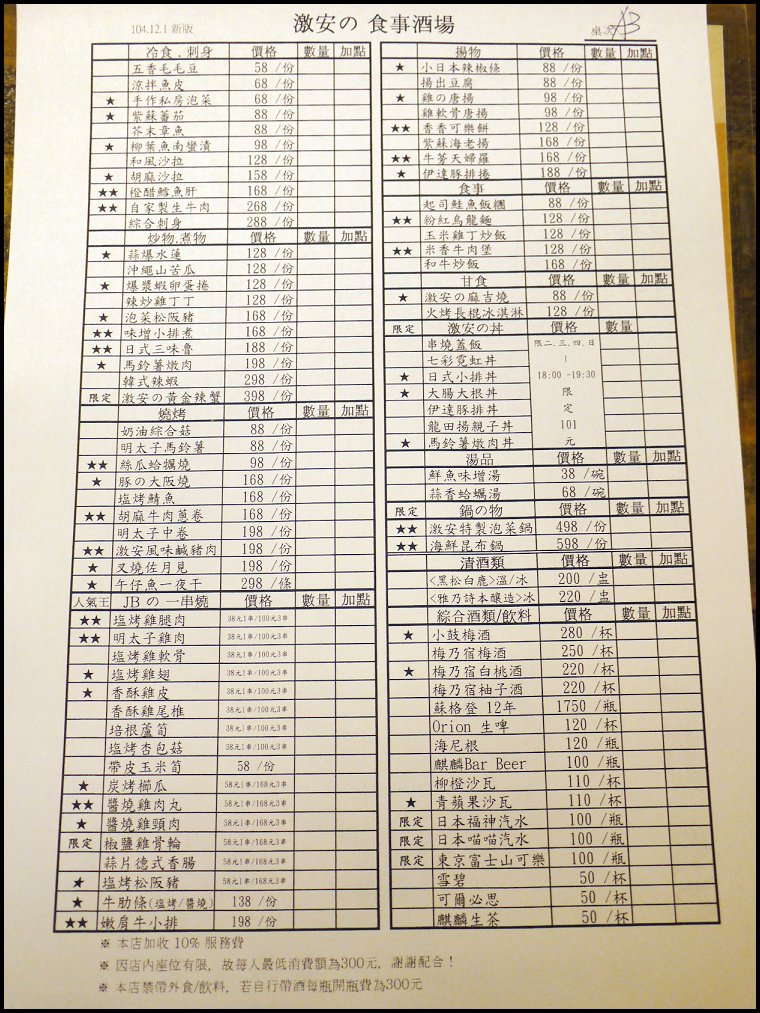 104.12.1 新版
激安の 食事酒場
桌次 A3
冷食.刺身 價格 數量 加點
五香毛毛豆 58 /份
涼拌魚皮 68 /份
★ 手作私房泡菜 68 /份
★ 紫蘇番茄 88 /份
芥末章魚 88 /份
★ 柳葉魚南蠻漬 98 /份
和風沙拉 128 /份
★ 胡麻沙拉 158 /份
★★ 橙醋鱈魚肝 168 /份
★★ 自家製生牛肉 268 /份
綜合刺身 288 /份
炒物.煮物 價格 數量 加點
★ 蒜爆水蓮 128 /份
沖繩山苦瓜 128 /份
★ 爆漿蝦卵蛋捲 128 /份
辣炒雞丁丁 128 /份
★ 泡菜松阪豬 168 /份
★★ 味增小排煮 168 /份
★★ 日式三味魯 188 /份
★ 馬鈴薯燉肉 198 /份
韓式辣蝦 298 /份
限定 激安の黃金辣蟹 398 /份
燒烤 價格 數量 加點
奶油綜合菇 88 /份
明太子馬鈴薯 88 /份
★★ 絲瓜蛤蠣燒 98 /份
★ 豚の大阪燒 168 /份
塩烤鯖魚 168 /份
★★ 胡麻牛肉蔥卷 168 /份
明太子中卷 198 /份
★★ 激安風味鹹豬肉 198 /份
★ 叉燒佐月見 198 /份
★ 午仔魚一夜干 298 /條
人氣王 JBの一串燒 價格 數量 加點
★★ 塩烤雞腿肉 38元1串/100元3串
★★ 明太子雞肉 38元1串/100元3串
塩烤雞軟骨 38元1串/100元3串
★ 塩烤雞翅 38元1串/100元3串
★ 香酥雞皮 38元1串/100元3串
香酥雞尾椎 38元1串/100元3串
培根蘆筍 38元1串/100元3串
塩烤杏包菇 38元1串/100元3串
帶皮玉米筍 58 /份
★ 炭烤櫛瓜 58元1串/168元3串
★★ 醬燒雞肉丸 58元1串/168元3串
★ 醬燒雞頸肉 58元1串/168元3串
限定 椒鹽雞骨輪 58元1串/168元3串
蒜片德式香腸 58元1串/168元3串
★ 塩烤松阪豬 58元1串/168元3串
★ 牛肋條(塩烤/醬燒) 138 /份
★★ 嫩肩牛小排 198 /份
揚物 價格 數量 加點
★ 小日本辣椒條 88 /份
揚出豆腐 88 /份
★ 雞の唐揚 98 /份
雞軟骨唐揚 98 /份
★★ 香香可樂餅 128 /份
紫蘇海老揚 168 /份
★★ 牛蒡天婦羅 168 /份
★ 伊達豚排捲 188 /份
食事 價格 數量 加點
起司鮭魚飯糰 88 /份
★★ 粉紅烏龍麵 128 /份
玉米雞丁炒飯 128 /份
★★ 米香牛肉堡 128 /份
和牛炒飯 168 /份
甘食 價格 數量 加點
★ 激安の麻吉燒 88 /份
火烤長棍冰淇淋 128 /份
限定 激安の丼 價格 數量
串燒蓋飯 限二.三.四.日
七彩霓虹丼 |
★ 日式小排丼 18:00 -19:30
★ 大腸大根丼 限
伊達豚排丼 定
龍田揚親子丼 101
★ 馬鈴薯燉肉丼 元
湯品 價格 數量 加點
鮮魚味增湯 38 /碗
蒜香蛤蠣湯 68 /碗
限定 鍋の物 價格 數量 加點
★★ 激安特製泡菜鍋 498 /份
★★ 海鮮昆布鍋 598 /份
清酒類 價格 數量 加點
<黑松白鹿>溫/冰 200 /盅
<雅乃詩本醸造>冰 220 /盅
綜合酒類/飲料 價格 數量 加點
★ 小鼓梅酒 280 /杯
梅乃宿梅酒 250 /杯
★ 梅乃宿白桃酒 220 /杯
梅乃宿柚子酒 220 /杯
蘇格登 12年 1750 /瓶
Orion 生啤 120 /杯
海尼根 120 /瓶
麒麟Bar Beer 100 /瓶
柳橙沙瓦 110 /杯
★ 青蘋果沙瓦 110 /杯
限定 日本福神汽水 100 /瓶
限定 日本喵喵汽水 100 /瓶
限定 東京富士山可樂 100 /瓶
雪碧 50 /杯
可爾必思 50 /杯
麒麟生茶 50 /杯
※ 本店加收 10% 服務費
※ 因店內座位有限, 故每人最低消費額為300元, 謝謝配合!
※ 本店禁帶外食/飲料, 若自行帶酒每瓶開瓶費為300元